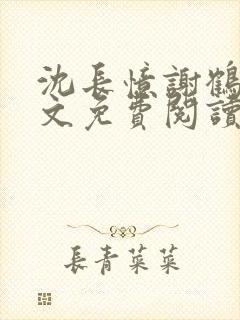 沈長憶謝鶴
文免費閱讀
長青菜菜